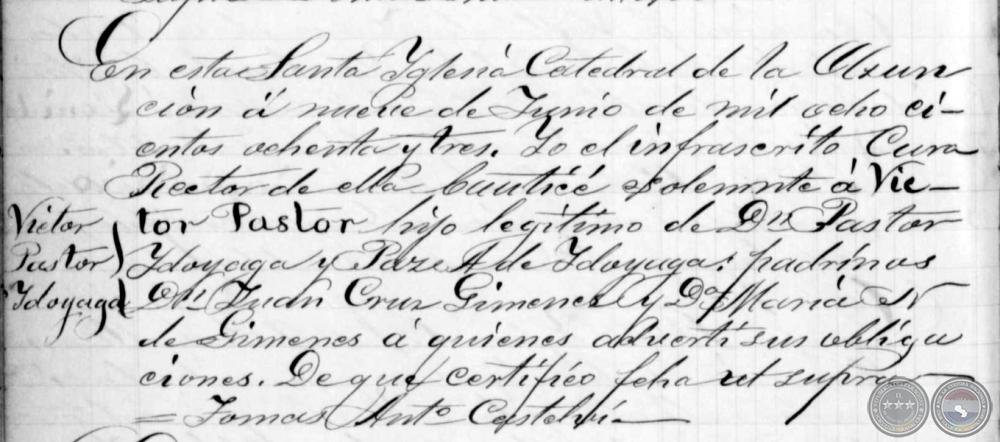 En esta Santa Yglesia Catedral de la Asun
cion á nueve de Junio de mil ocho ci-
entos ochenta y tres. Yo el infrascrito Cura
Rector de ella bauticé solemnte á Vic-
tor Pastor hijo legítimo de Dn Pastor
Victor
Pastor
Ydoyaga
Ydoyaga y Paz A de Ydoyaga: padrinos
Dn Juan Cruz Gimenes y Da Maria N
de Gimenes á quienes advertí sus obliga
ciones. De que certifico fcha ut supra
= Tomas Anto Castelvi -